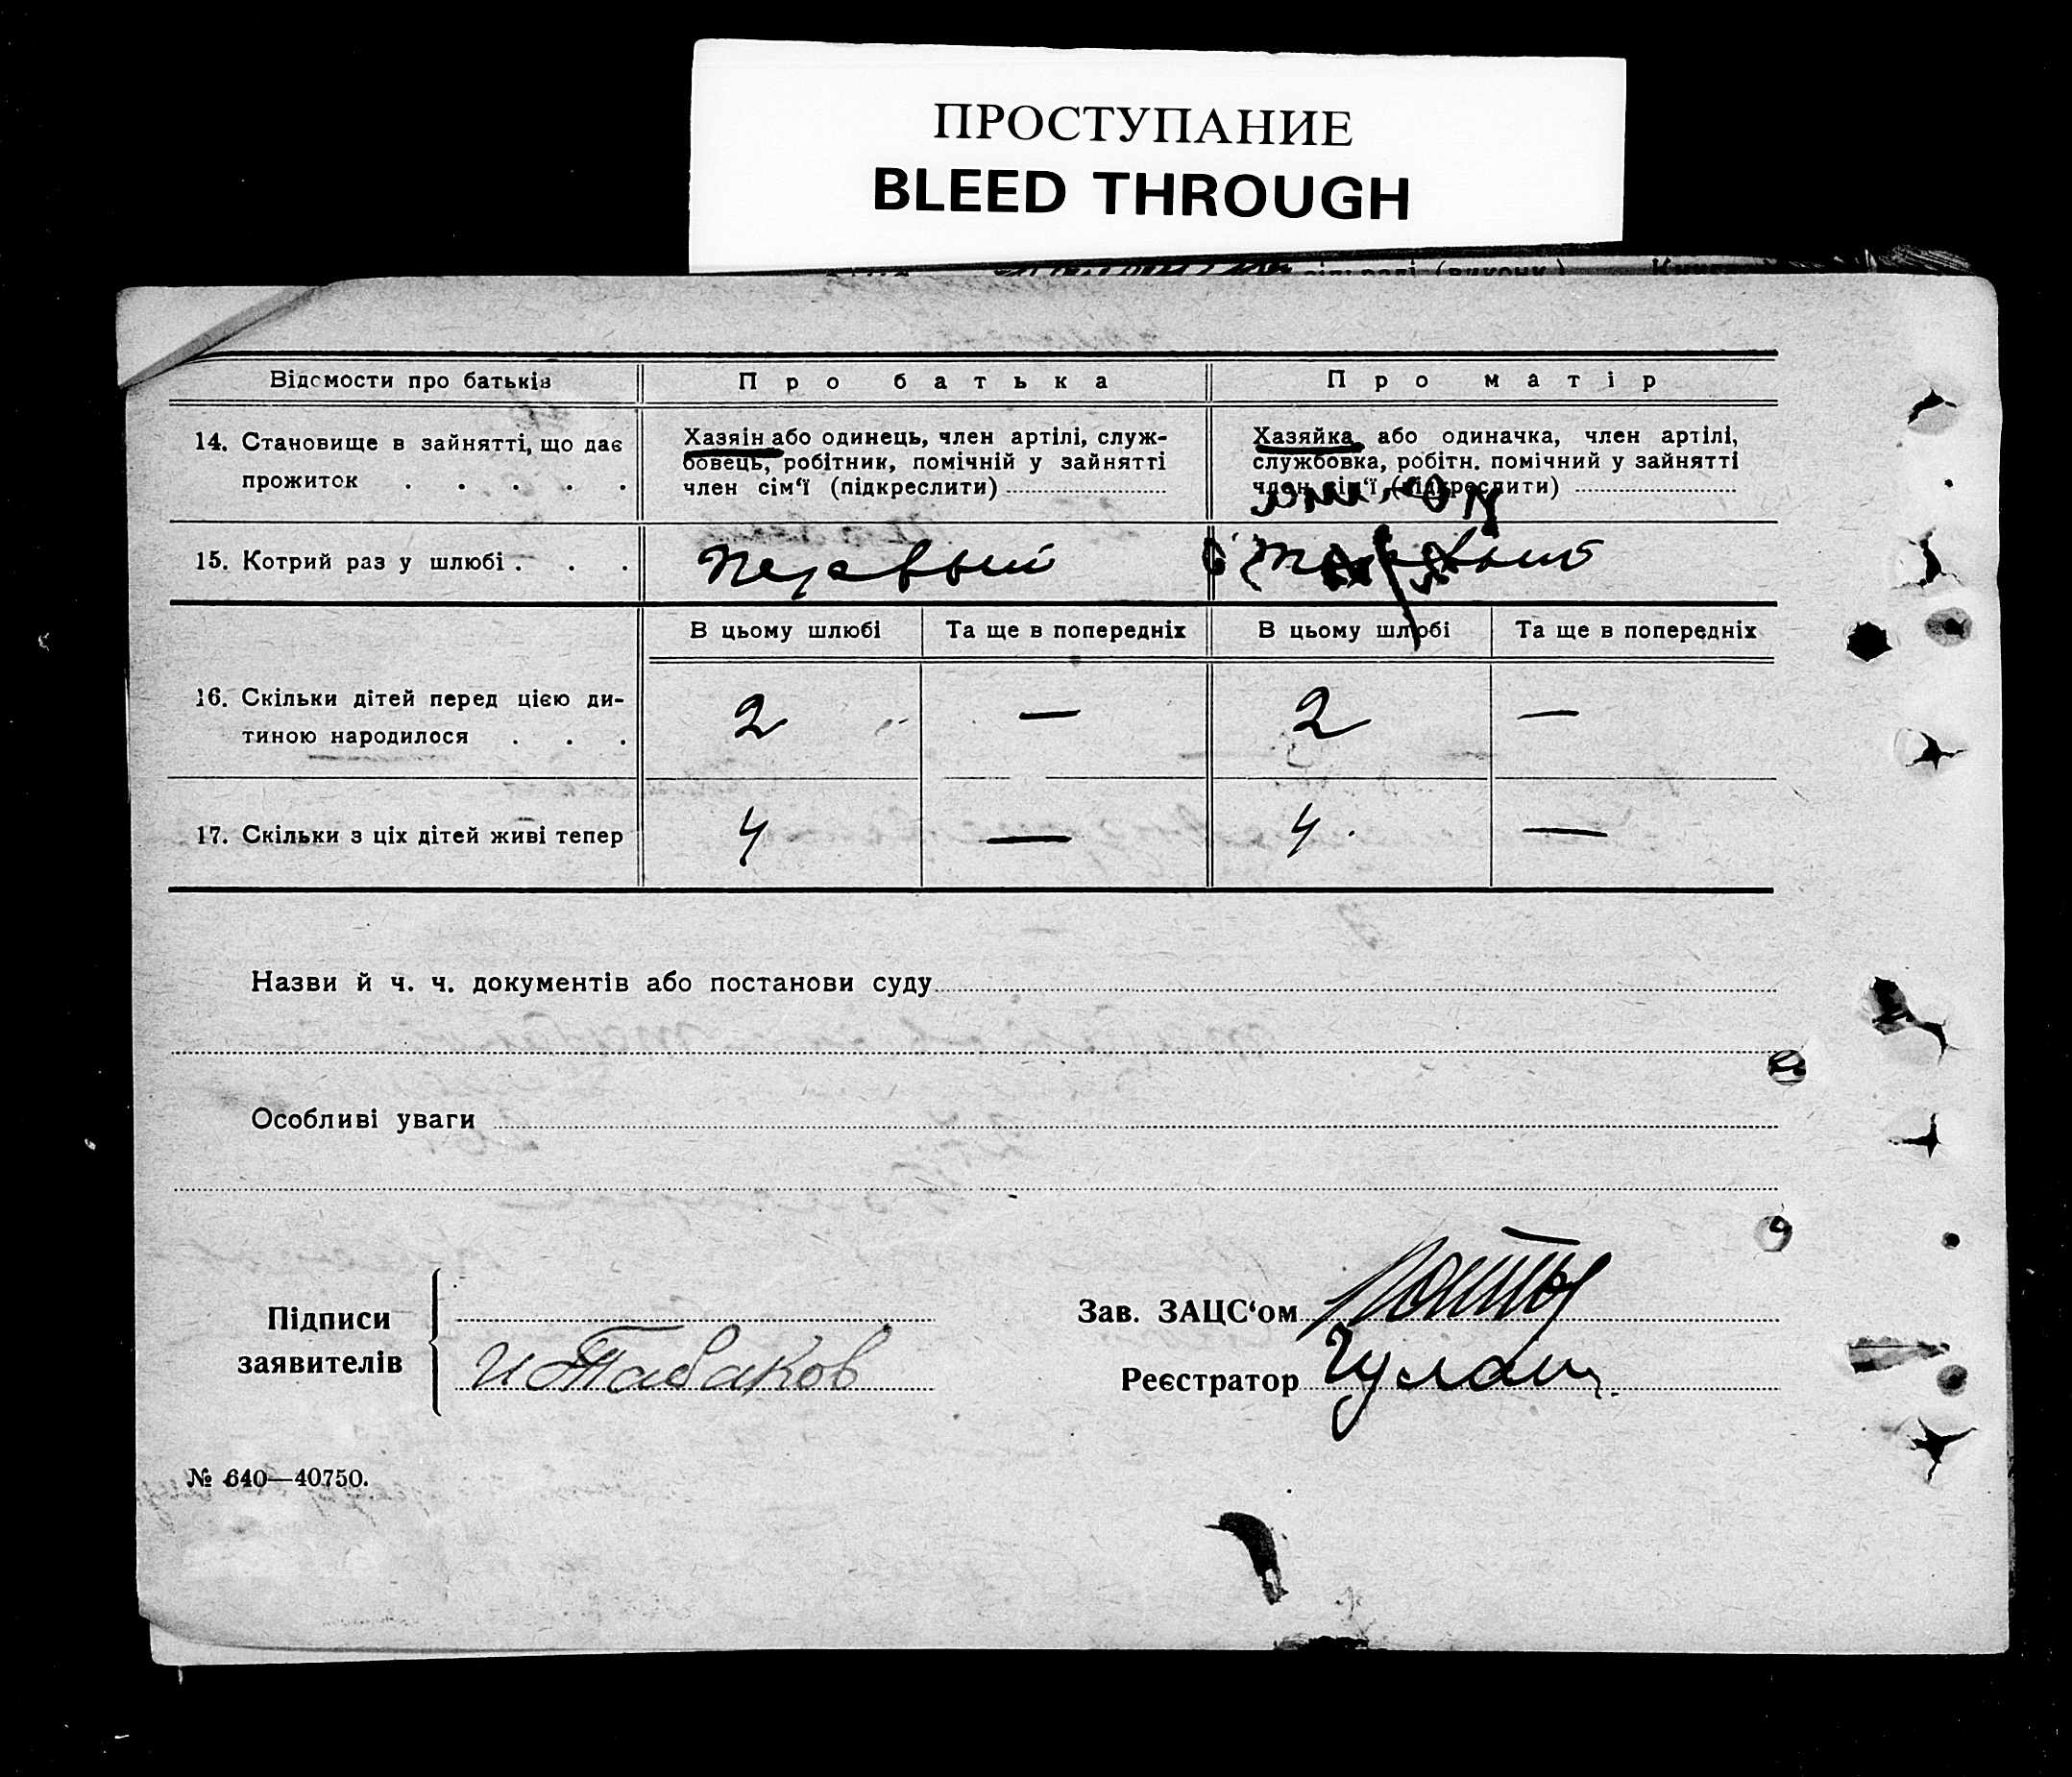 ПРОСТУПАНИЕ
BLEED THROUGH
сільраді (виконк.)
Відомости про батьків
Про батька
Про матір
14. Становище в зайнятті, що дає
прожиток . . . . .
Хазяін або одинець, член артілі, служ-
бовець, робітник, помічній у зайнятті
член сім‘ї (підкреслити)
Хазяйка або одиначка, член артілі,
службовка, робітн. помічний у зайнятті
член сім‘ї (підкреслити)
15. Котрий раз у шлюбі . . .
первый
первый
В цьому шлюбі
Та ще в попередніх
В цьому шлюбі
Та ще в попередніх
16. Скільки дітей перед цією ди-
тиною народилося . . .
2
—
2
—
17. Скільки з ціх дітей живі тепер
4
—
4
—
Назви й ч. ч. документів або постанови суду
Особливі уваги
Підписи
заявителів
И Табаков
Зав. ЗАЦС‘ом
Реєстратор
№ 640—40750.